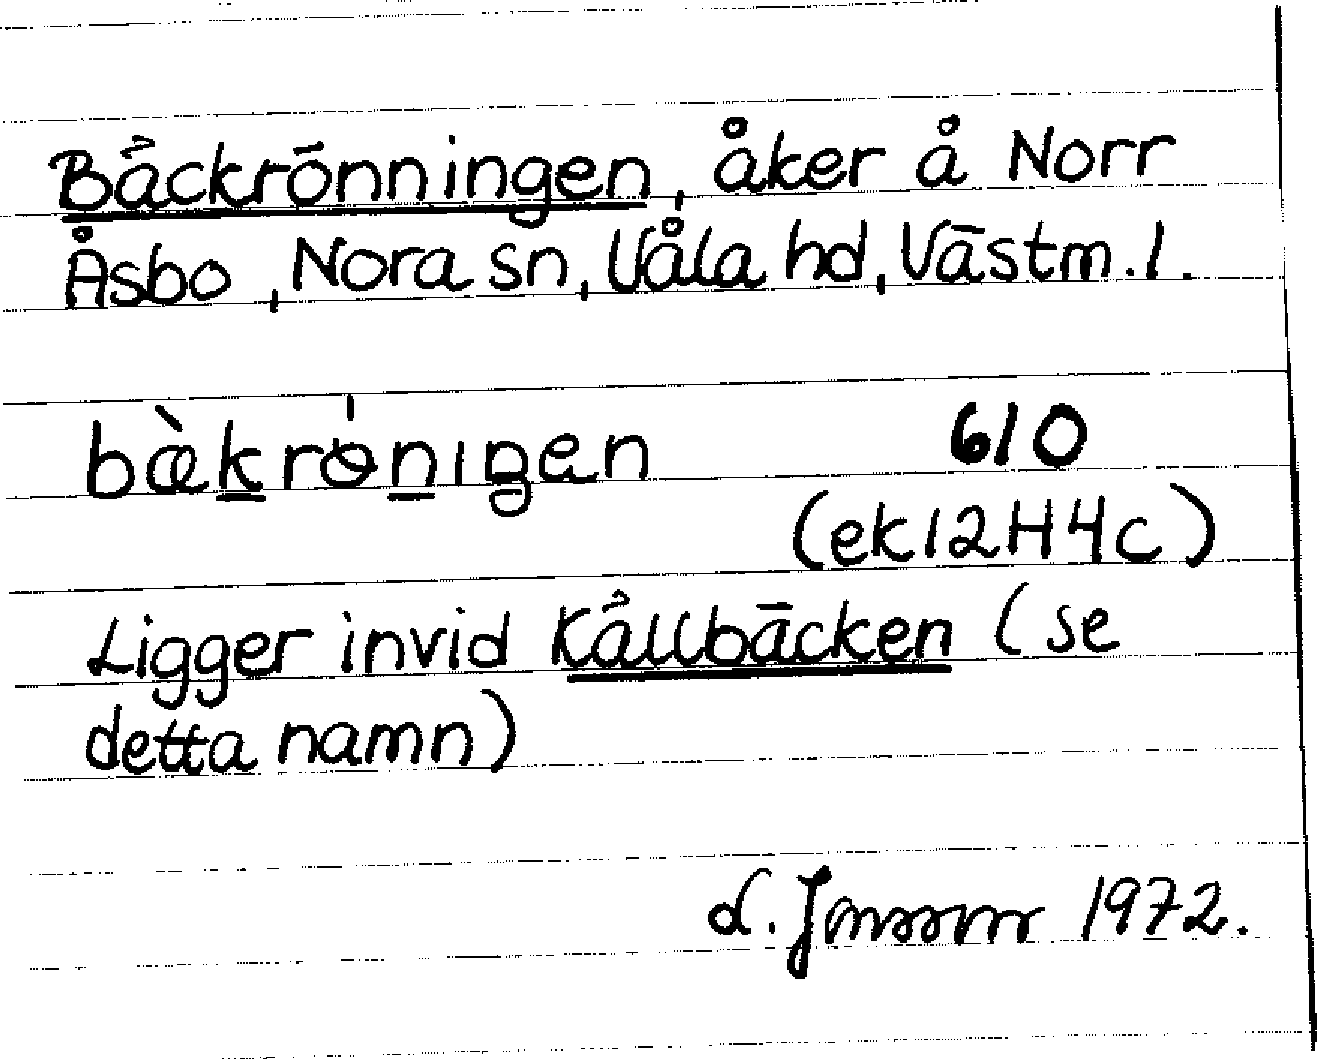 Bäckrönningen, åker å Norr
Åsbo, Nora sn, Våla hd, Västm. l.
bæ̀krön̲ıŋen 610
(ek 12H4c)
Ligger invid Källbäcken (se
detta namn)
1972.